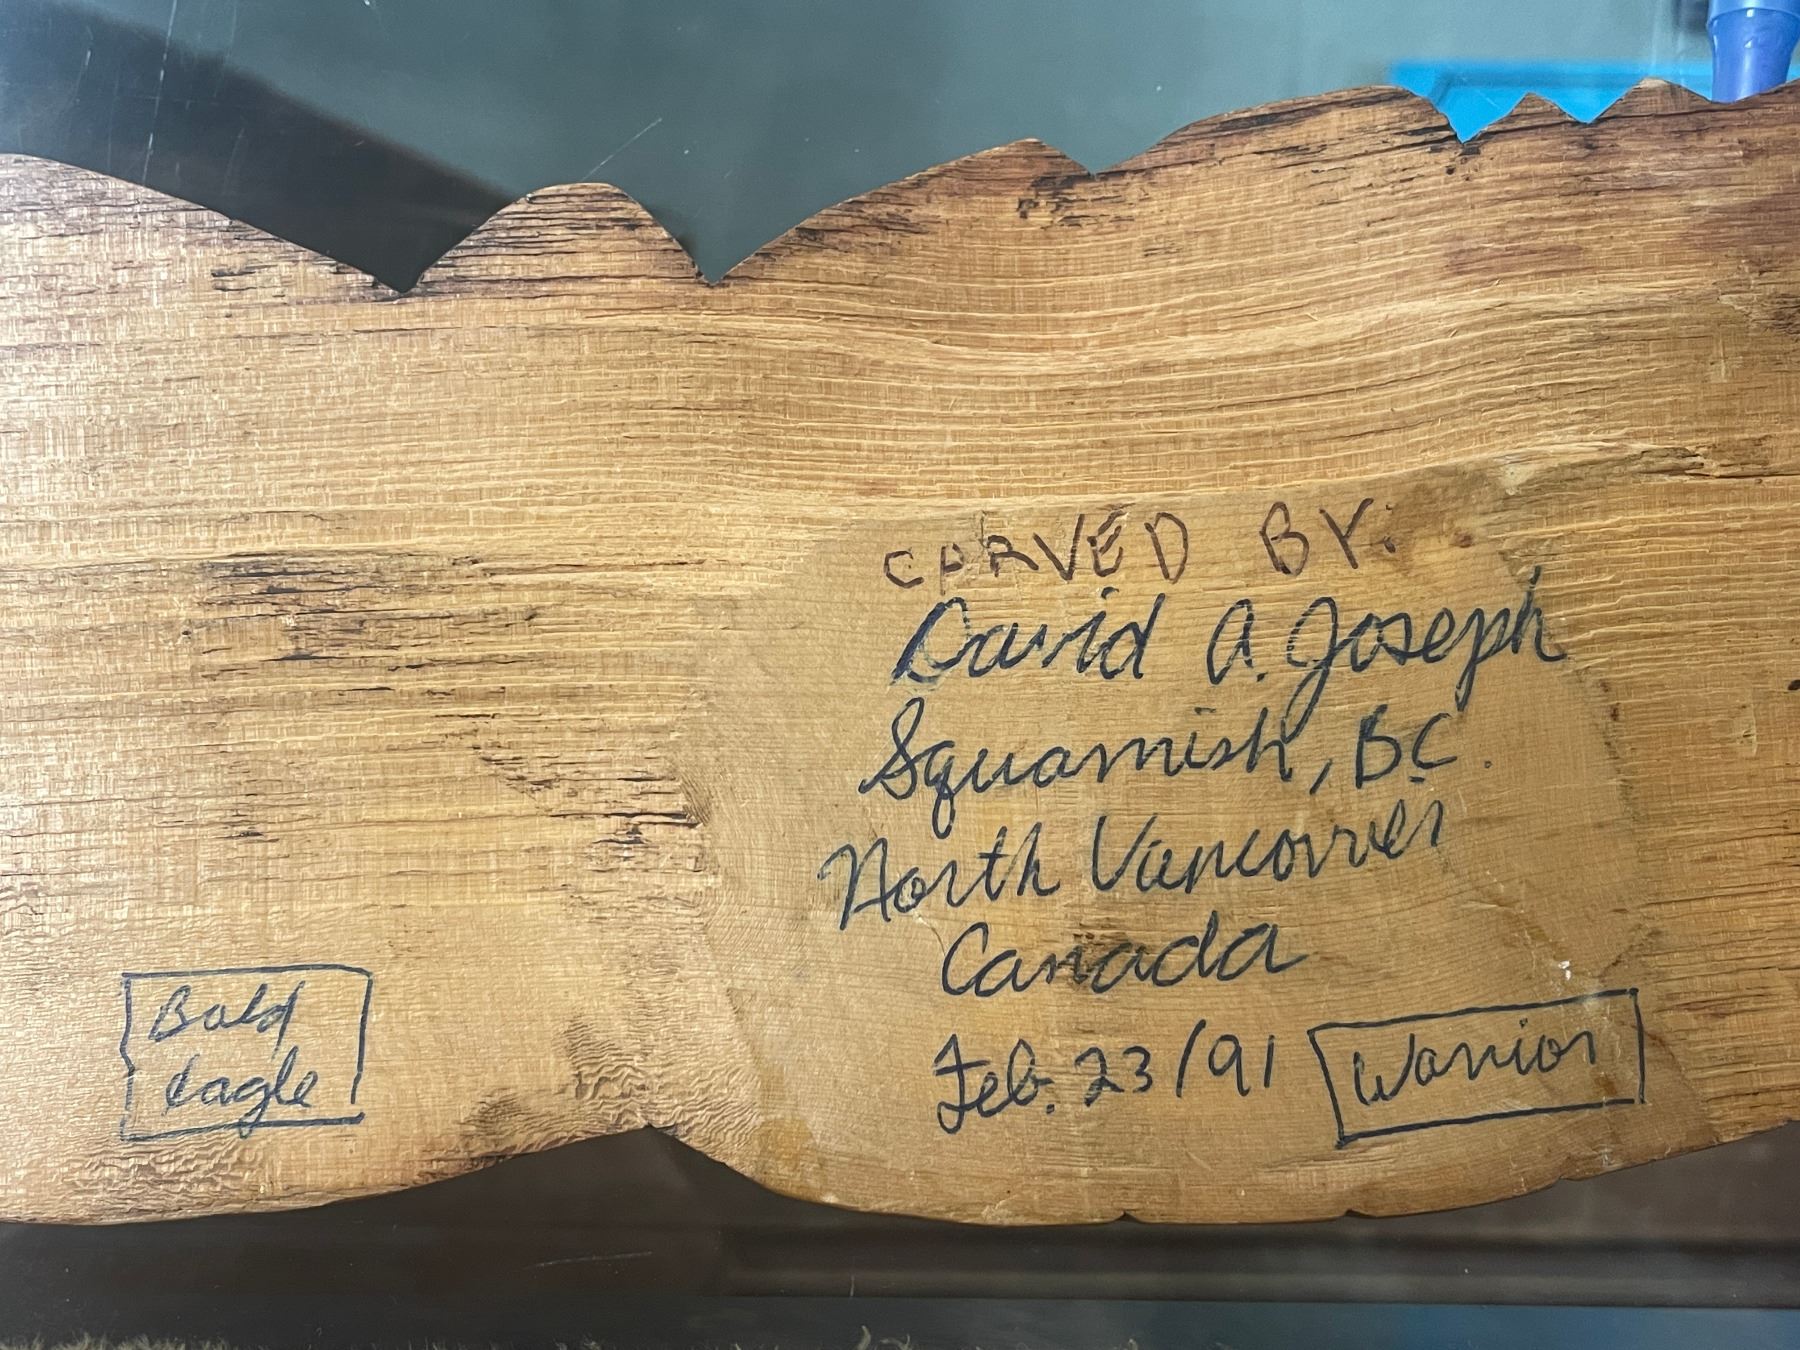 CARVED BY:
David A. Joseph
Squamish, BC.
North Vancouver
Canada
Feb. 23/91
Warrior
Bald
Eagle